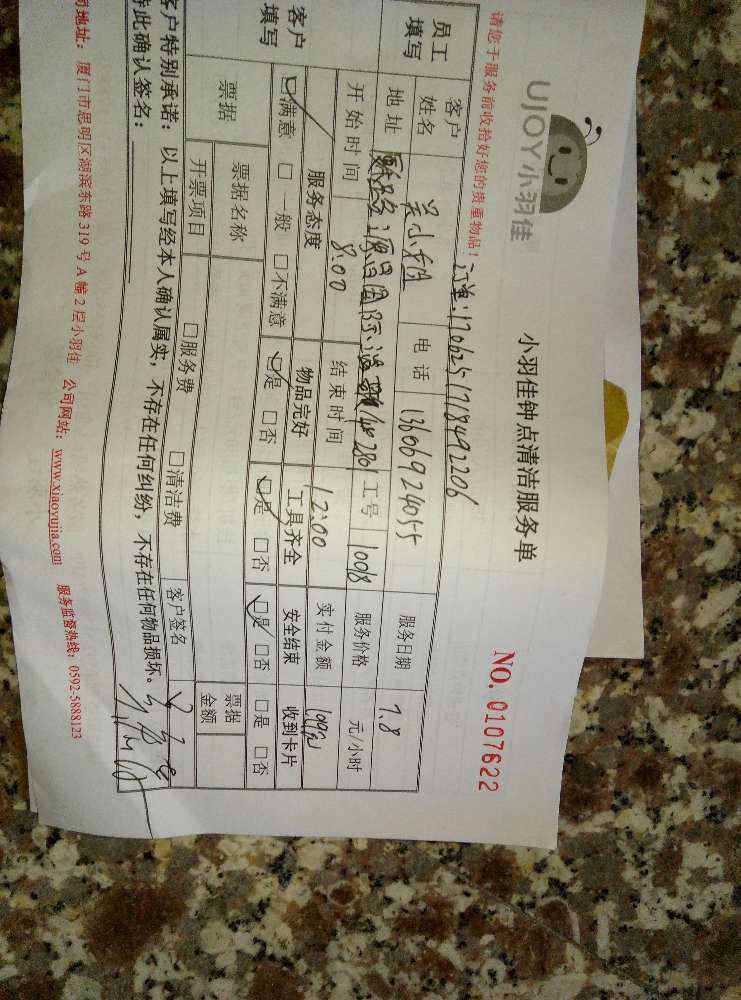 UJOY小羽佳
小羽佳钟点清洁服务单
NO. 0107622
请您于服务前收拾好您的贵重物品!
170625171849 2206
员工填写 客户姓名 小姐 电话 13606924055 服务日期 7.8
地址 国际 工号 1008 服务价格 元/小时
开始时间 8:00 结束时间 12:00 实付金额
客户填写 服务态度 物品完好 工具齐全 安全结束 收到卡片
☑满意 □一般 □不满意 ☑是 □否 ☑是 □否 ☑是 □否 □是 □否
票据 票据名称 客户签名 票据金额
开票项目 □服务费 □清洁费
客户特别承诺:以上填写经本人确认属实,不存在任何纠纷,不存在任何物品损坏。
特此确认签名:
司地址:厦门市思明区湖滨东路 319 号 A 幢 2 层小羽佳 公司网站:www.xiaoyujia.com 服务监督热线:0592-5888123